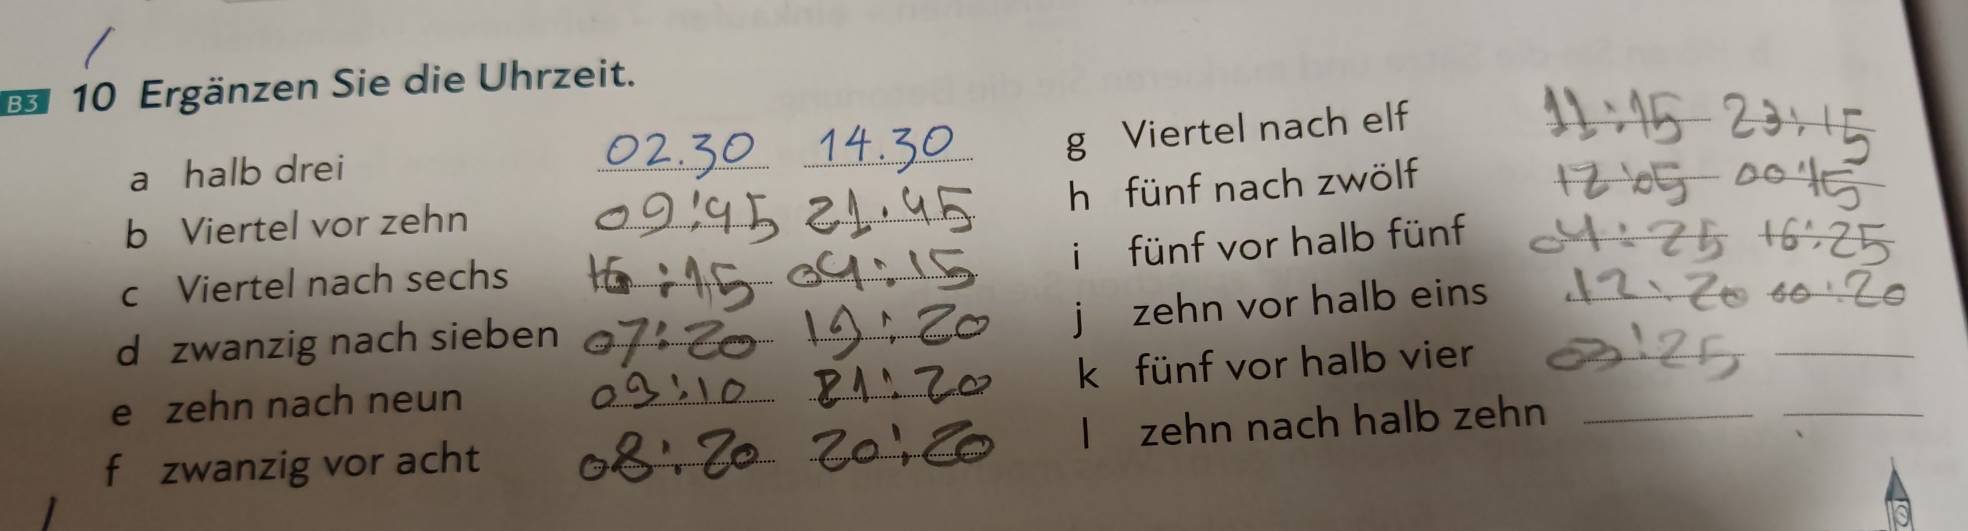 B3 10 Ergänzen Sie die Uhrzeit.
a halb drei 02.30 14.30
b Viertel vor zehn 09:45 21.45
c Viertel nach sechs 16:15 04:15
d zwanzig nach sieben 07:20 19:20
e zehn nach neun 09:10 21:20
f zwanzig vor acht 08:20 20:20
g Viertel nach elf 11:15 23:15
h fünf nach zwölf 12:05 00:15
i fünf vor halb fünf 04:25 16:25
j zehn vor halb eins 12:20 00:20
k fünf vor halb vier 03:25
l zehn nach halb zehn